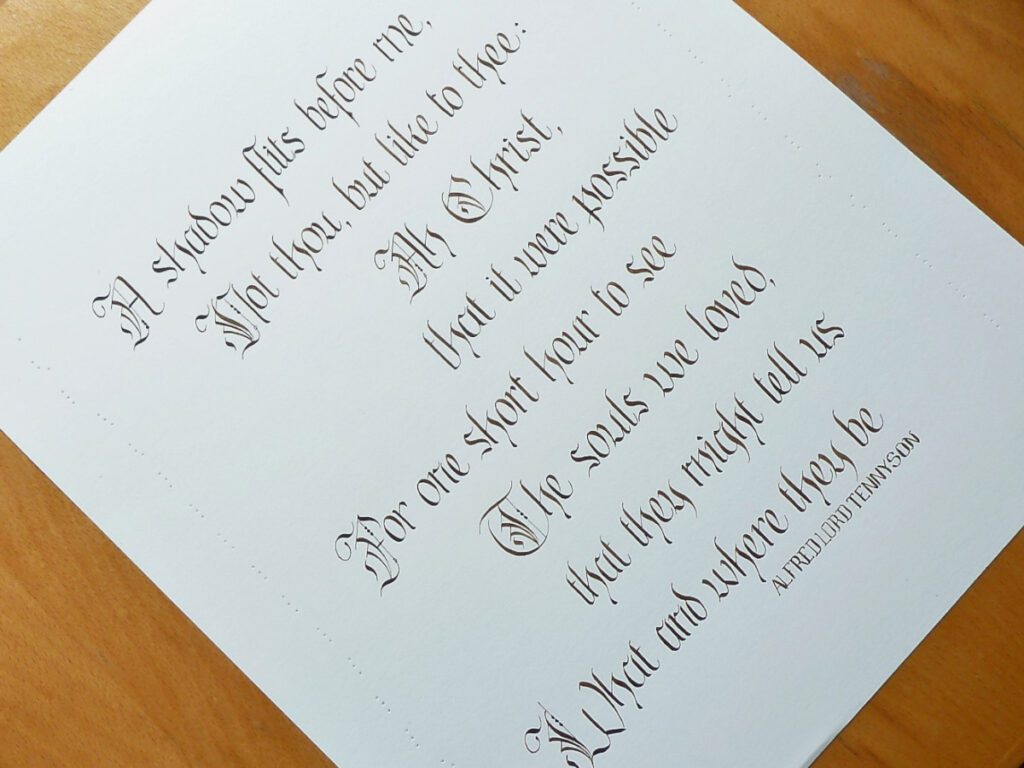 A shadow flits before me,
Not thou, but like to thee:
Ah Christ,
that it were possible
For one short hour to see
The souls we loved,
that they might tell us
What and where they be
ALFRED LORD TENNYSON